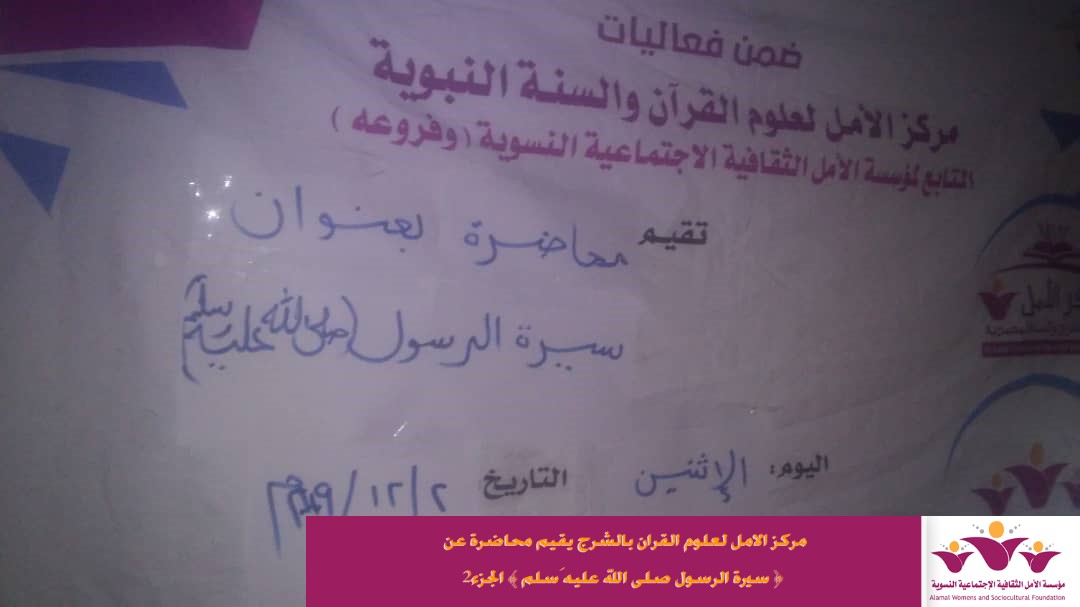 ضمن فعاليات
مركز الأمل لعلوم القرآن والسنة النبوية
التابع لمؤسسة الأمل الثقافية الاجتماعية النسوية (وفروعه)
تقيم محاضرة بعنوان
سيرة الرسول (صلى الله عليه وسلم)
اليوم: الإثنين التاريخ ٢/١٢/٢٠١٩م
الأمل
مركز الامل لعلوم القران بالشرج يقيم محاضرة عن
﴿ سيرة الرسول صلى الله عليه َسلم ﴾ الجزء2
مؤسسة الأمل الثقافية الإجتماعية النسوية
Alamal Womens and Sociocultural Foundation